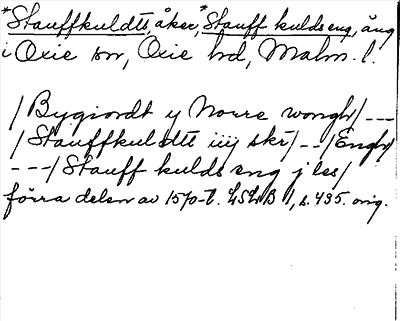 *Stauffkuldtt, åker, *Stauff kulds eng, äng
i Oxie sn, Oxie hd, Malm. l.
/Bygiordt y Norre wongh/---
/Stauffkuldtt iiij skr/--/Engh/
---/Stauff kulds eng j les/
förra delen av 1570-t. LSLB 1, s. 435. orig.